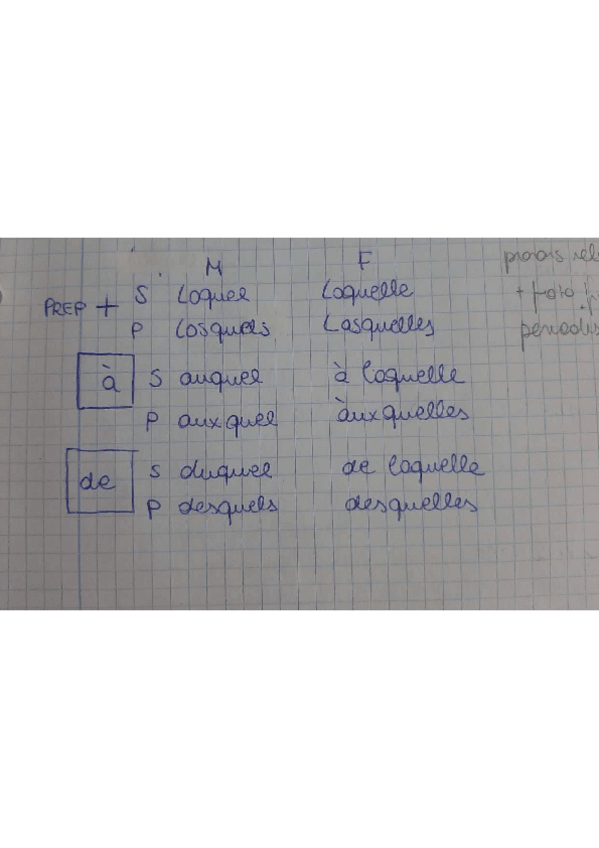 M F
PREP + S Loquel Loquelle
P Losquels Lasquelles
à S auquel à loquelle
P auxquel àuxquelles
de S duquel de loquelle
P desquels desquelles